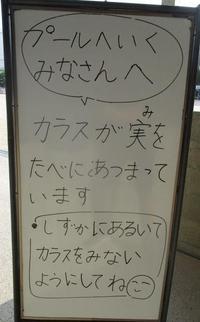 プールへいく
みなさんへ
み
カラスが実を
たべにあつまって
います
•しずかにあるいて
カラスをみない
ようにしてね